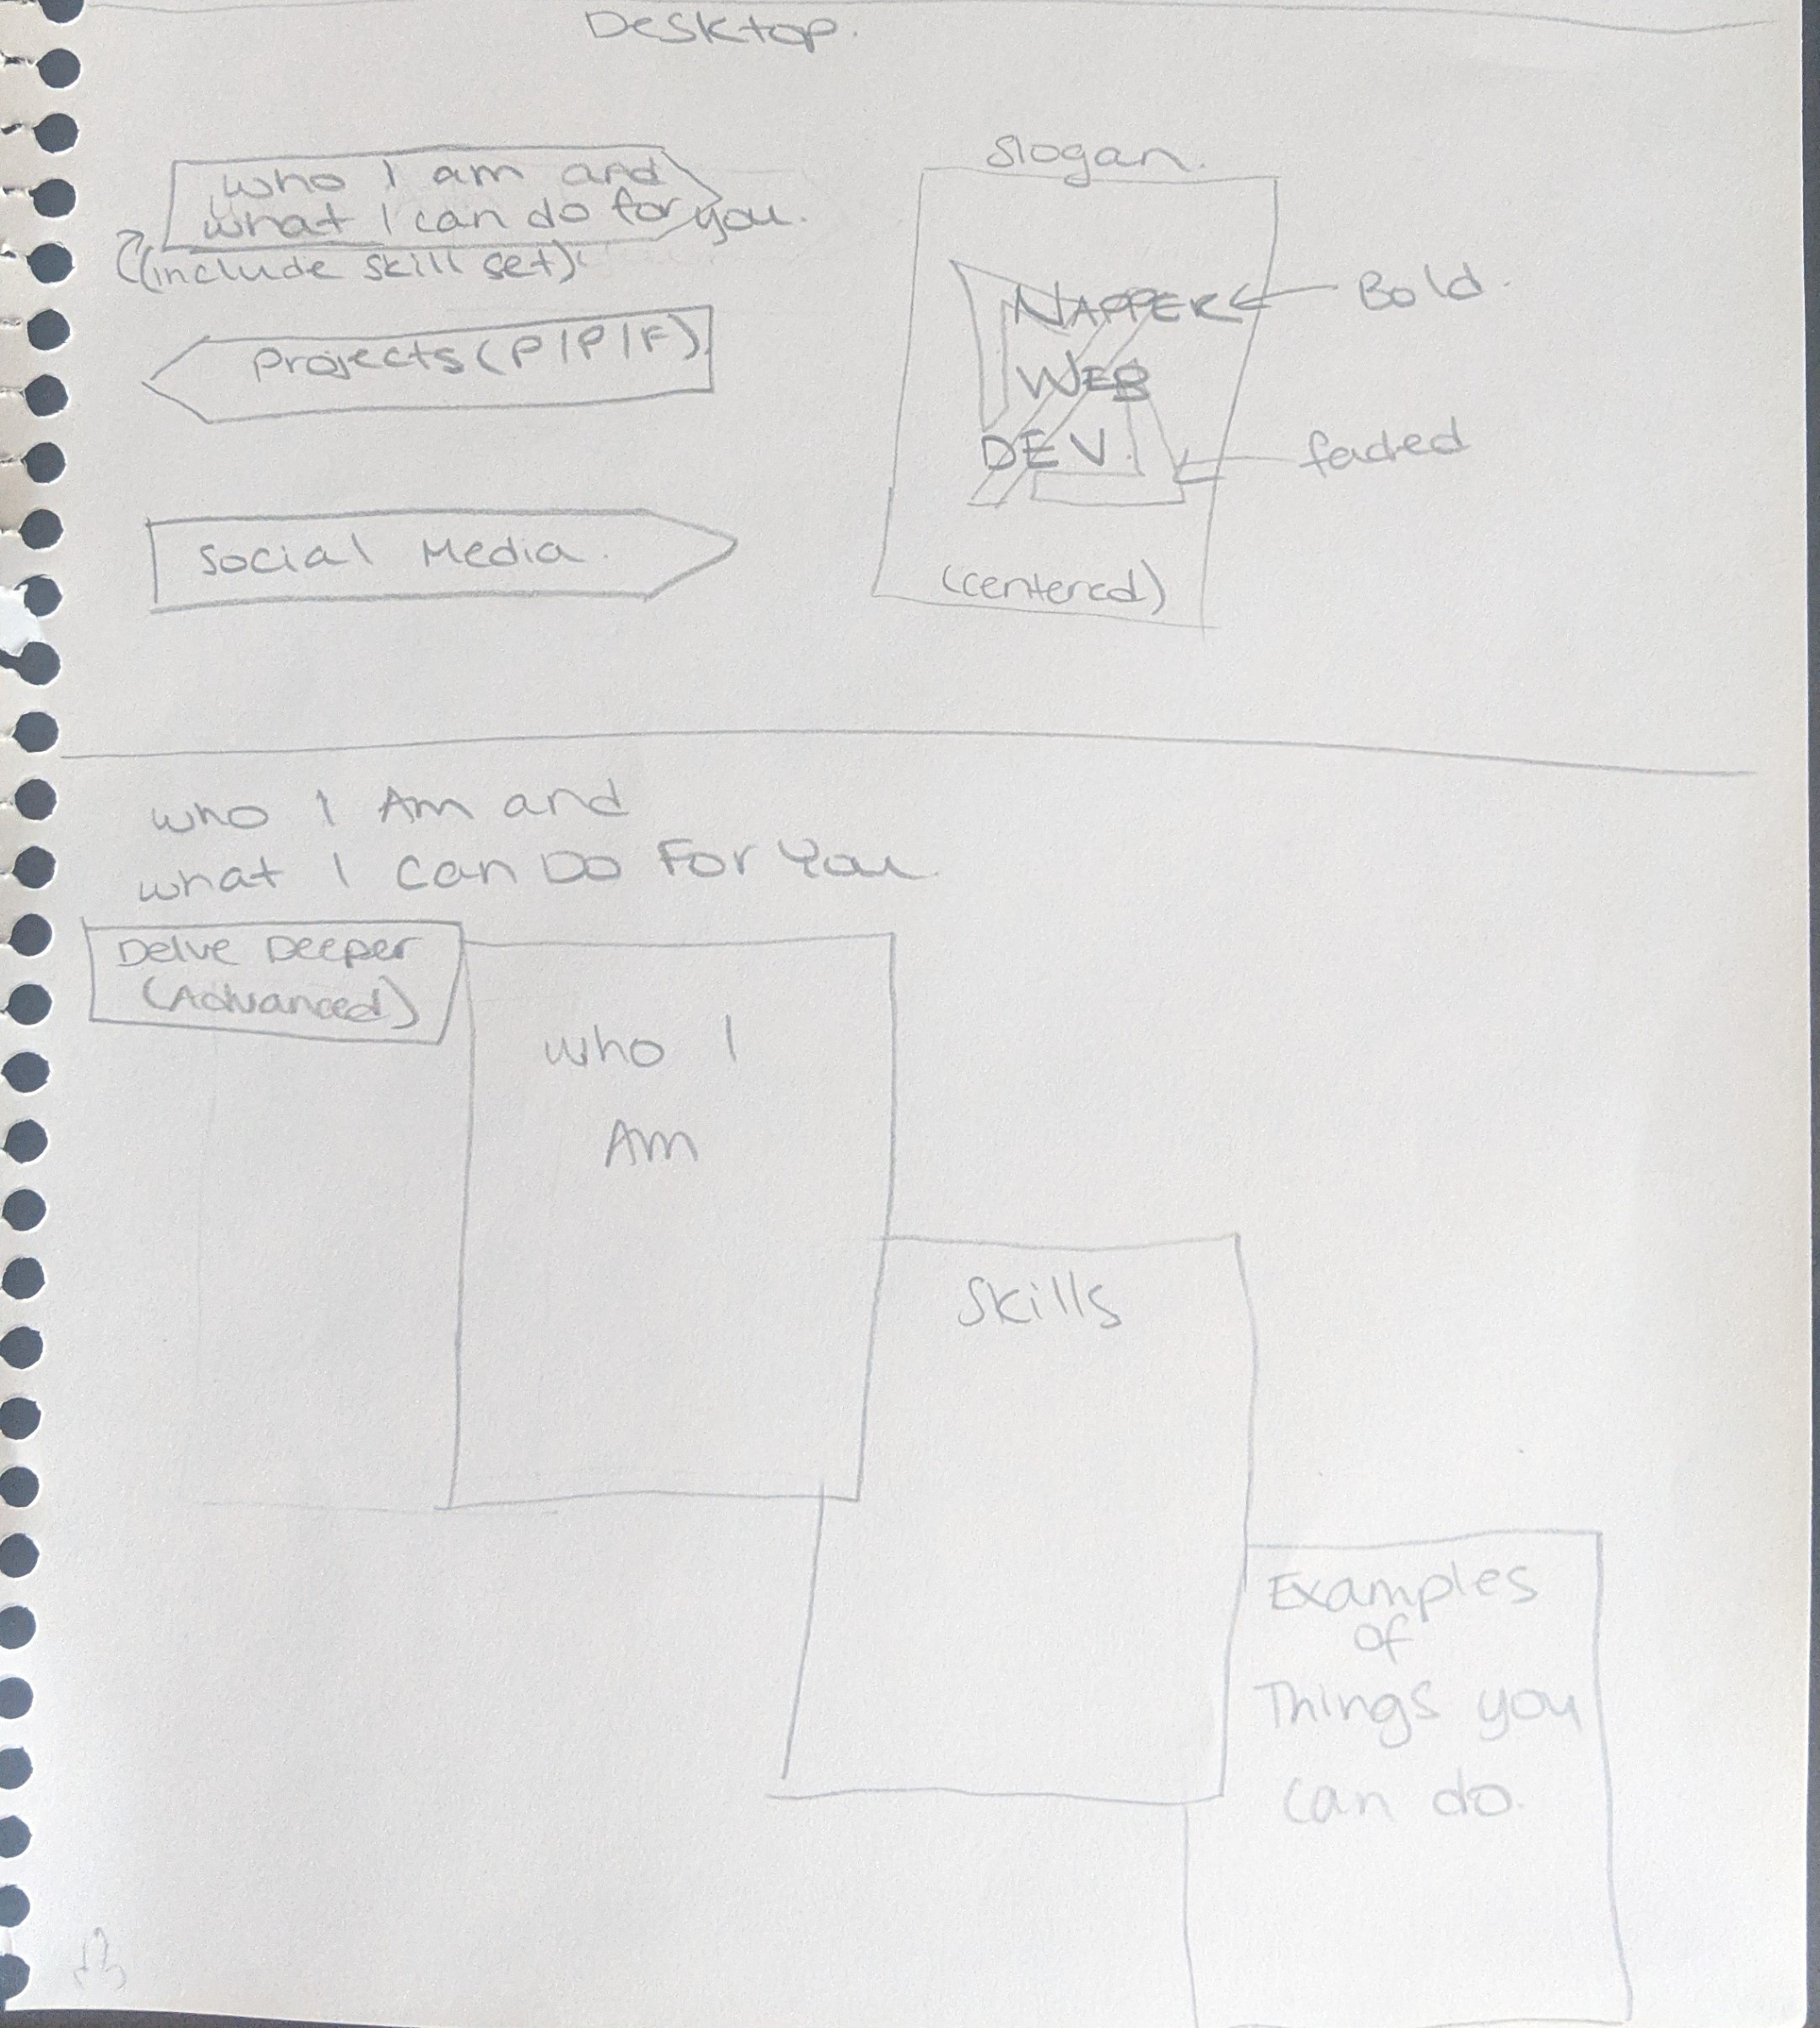 Desktop.
who I am and
what I can do for you.
(include skill set)
Projects (P/P/F)
Social Media.
Slogan.
NAPPER
Bold.
WEB
DEV.
faded
(centered)
who I Am and
what I Can Do For You.
Delve Deeper
(Advanced)
who I
Am
Skills
Examples
of
Things you
can do.